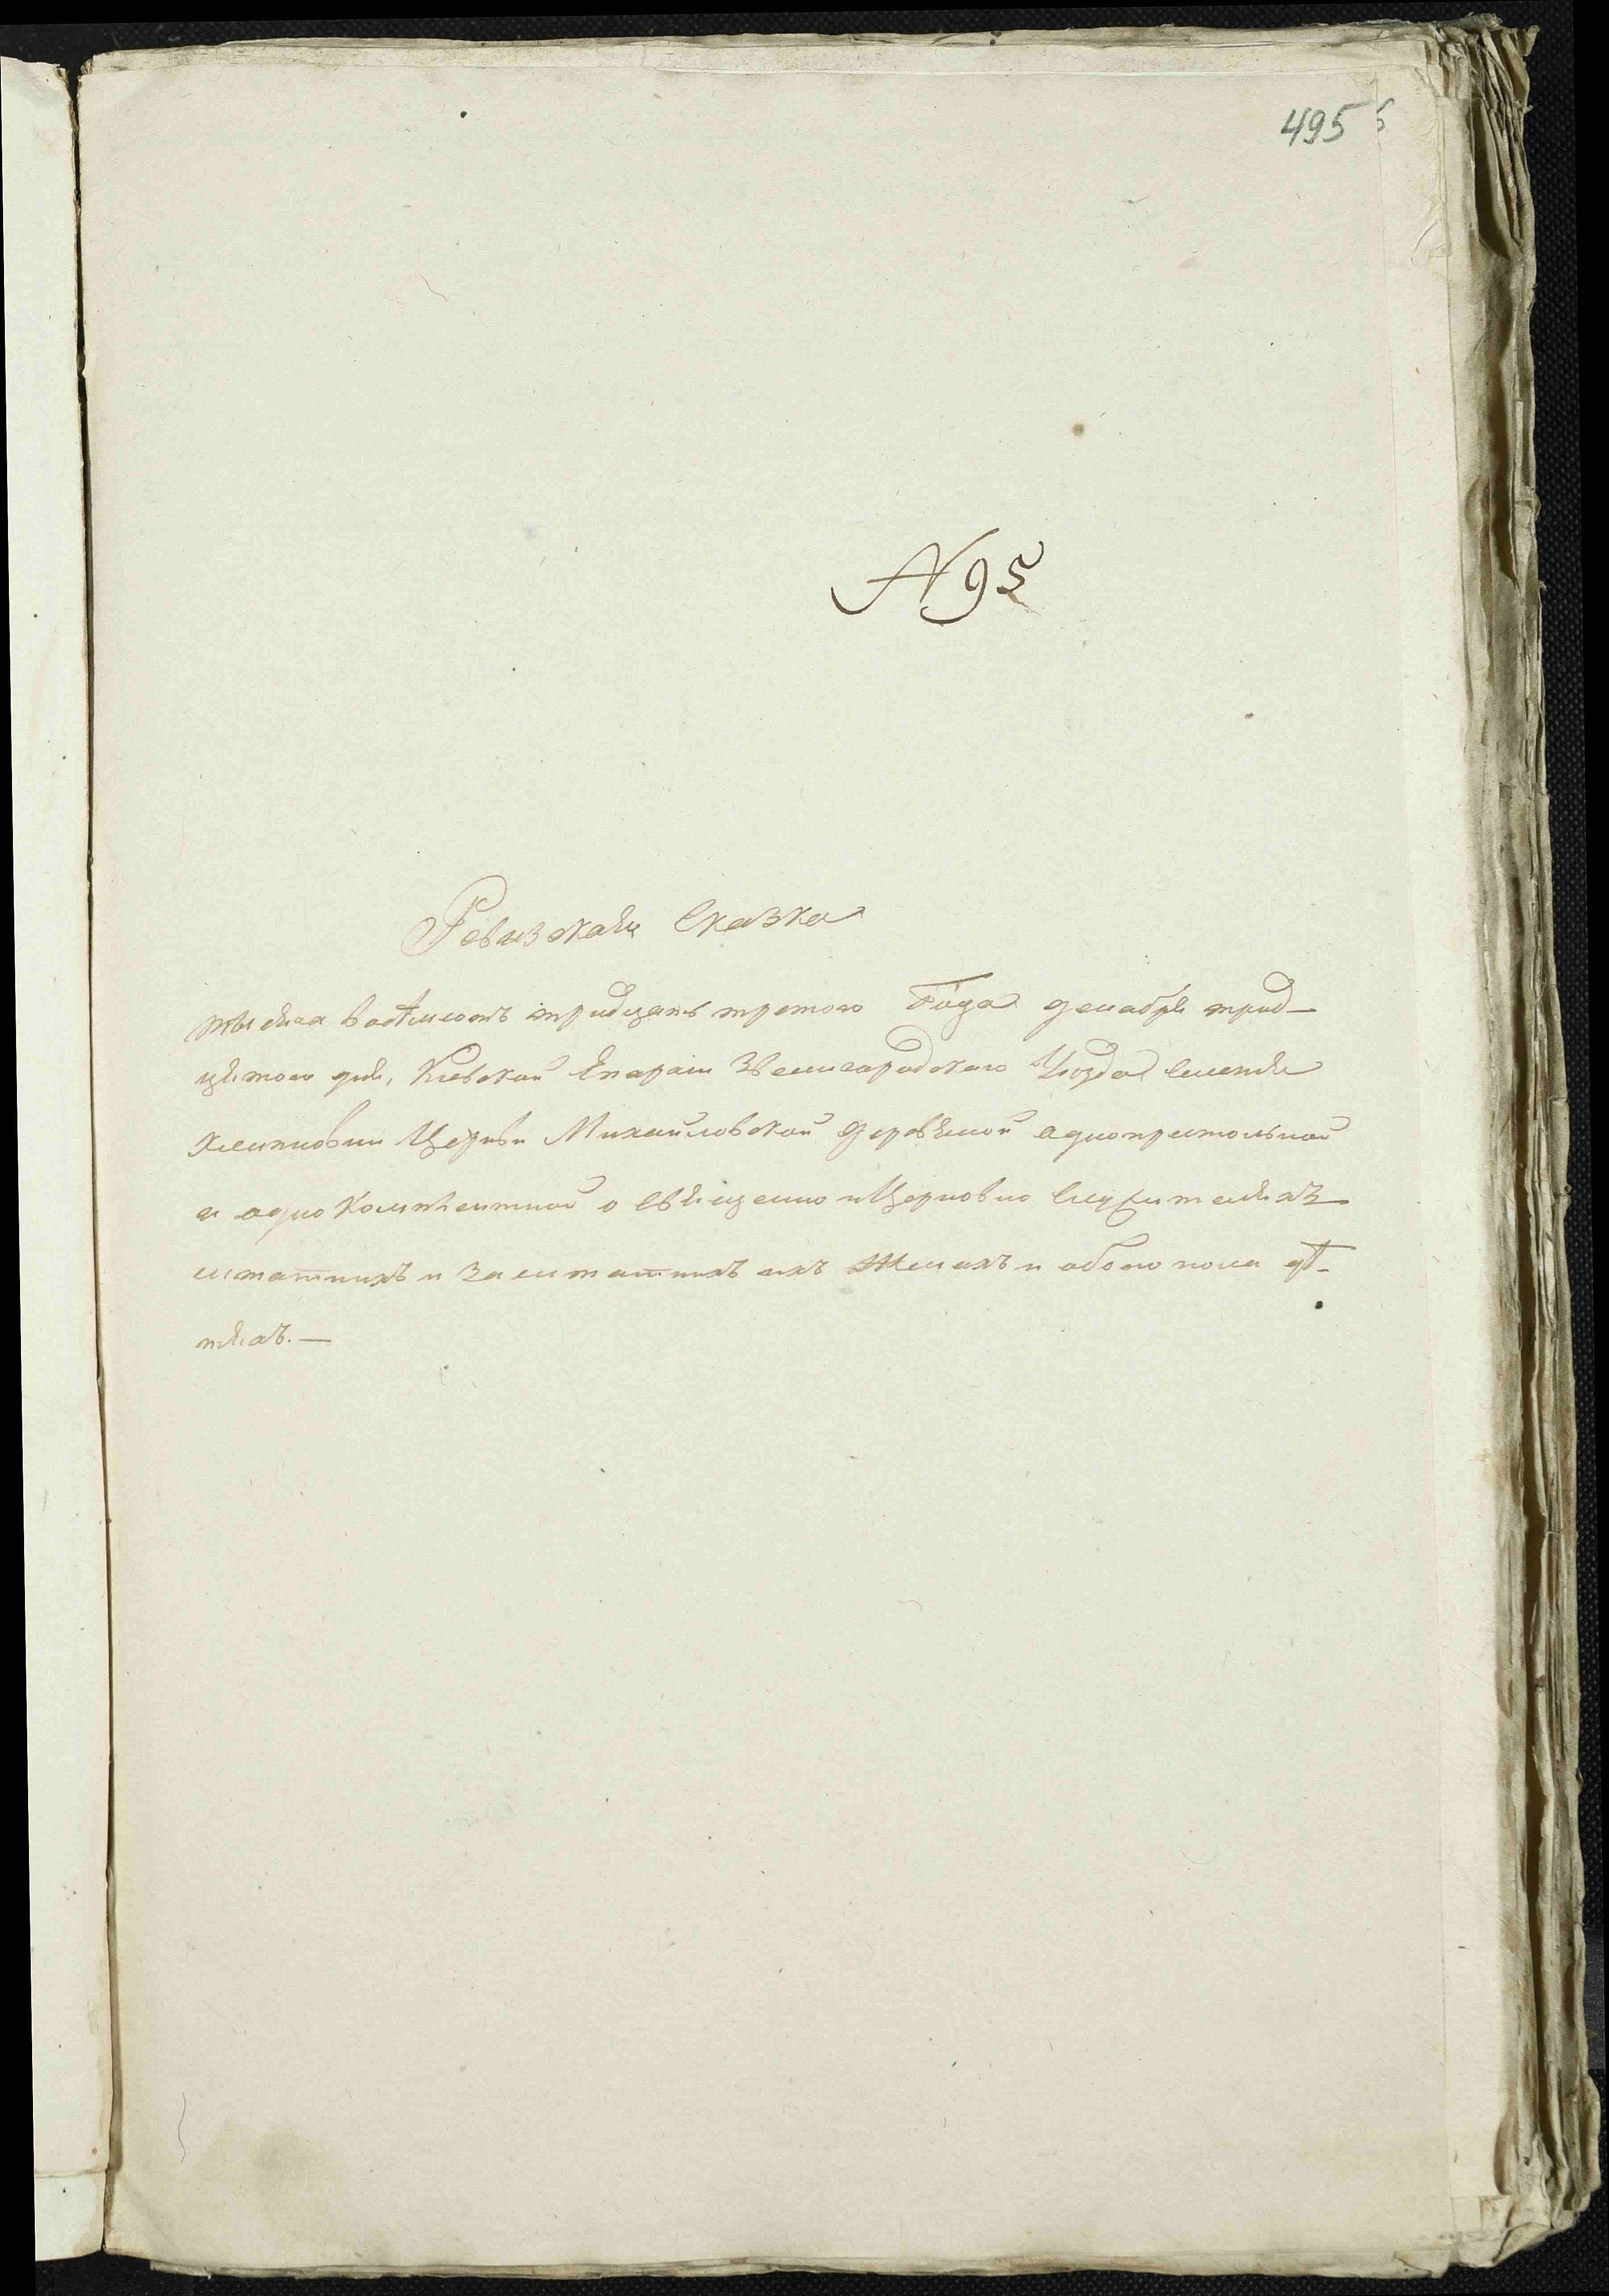 495
N 95
Ревизская Сказка
тысяча восѣмсотъ тридцать третого Года декабря трид-
цятого дня, Киевской Епархии Звенигородского Уезда
Церкви Михайловской деревяной однопрестольной
и однокомплектной о Священно и Церковно Служителяхъ
штатнихъ и Заштатнихъ ихъ Женахъ и обоего пола дѣ-
тяхъ. —